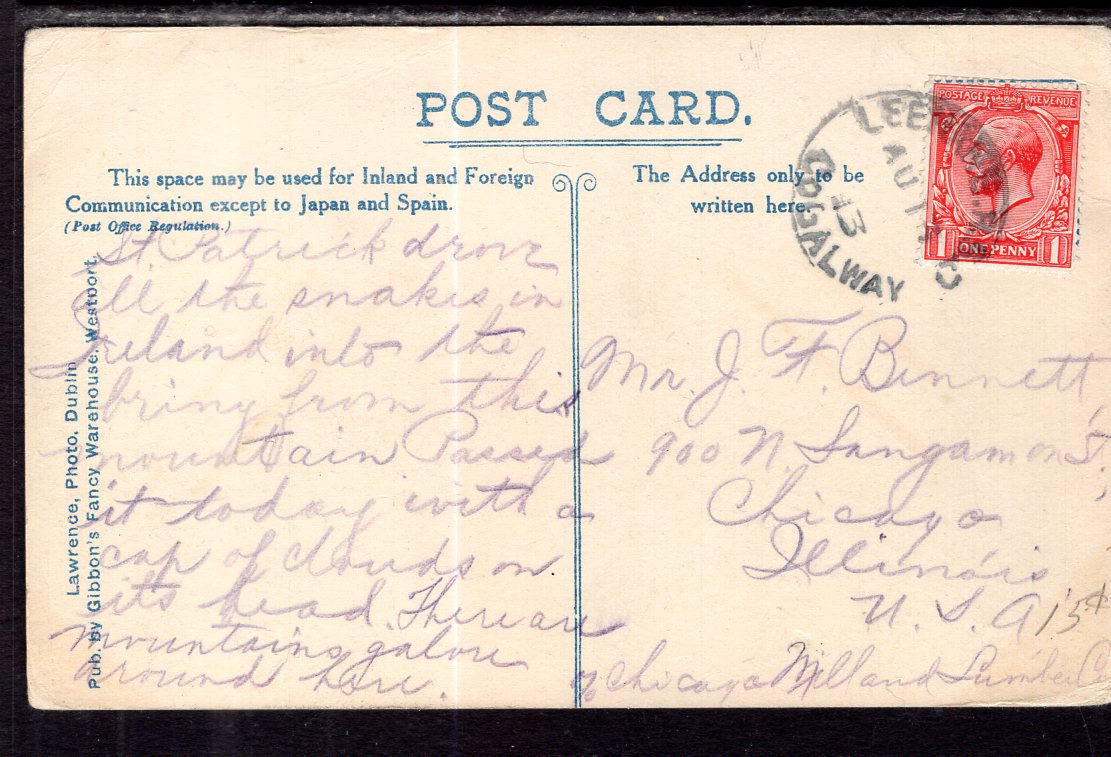 POST CARD.
This space may be used for Inland and Foreign
Communication except to Japan and Spain.
(Post Office Regulation.)
The Address only to be
written here.
POSTAGE REVENUE
ONE PENNY
1 1
LEE
AU
13
CO. GALWAY
Lawrence, Photo, Dublin
Pub. by Gibbon's Fancy Warehouse, Westport.
St Patrick drove
all the snakes in
Ireland into the
briny from this
mountain Passed
it today with a
cap of clouds on
its head. There are
mountains galore
around here.
Mr. J. F. Bennett,
900 N. Sangamon St,
Chicago
Illinois
U. S. A
15¢
℅ Chicago Mill and Lumber Co